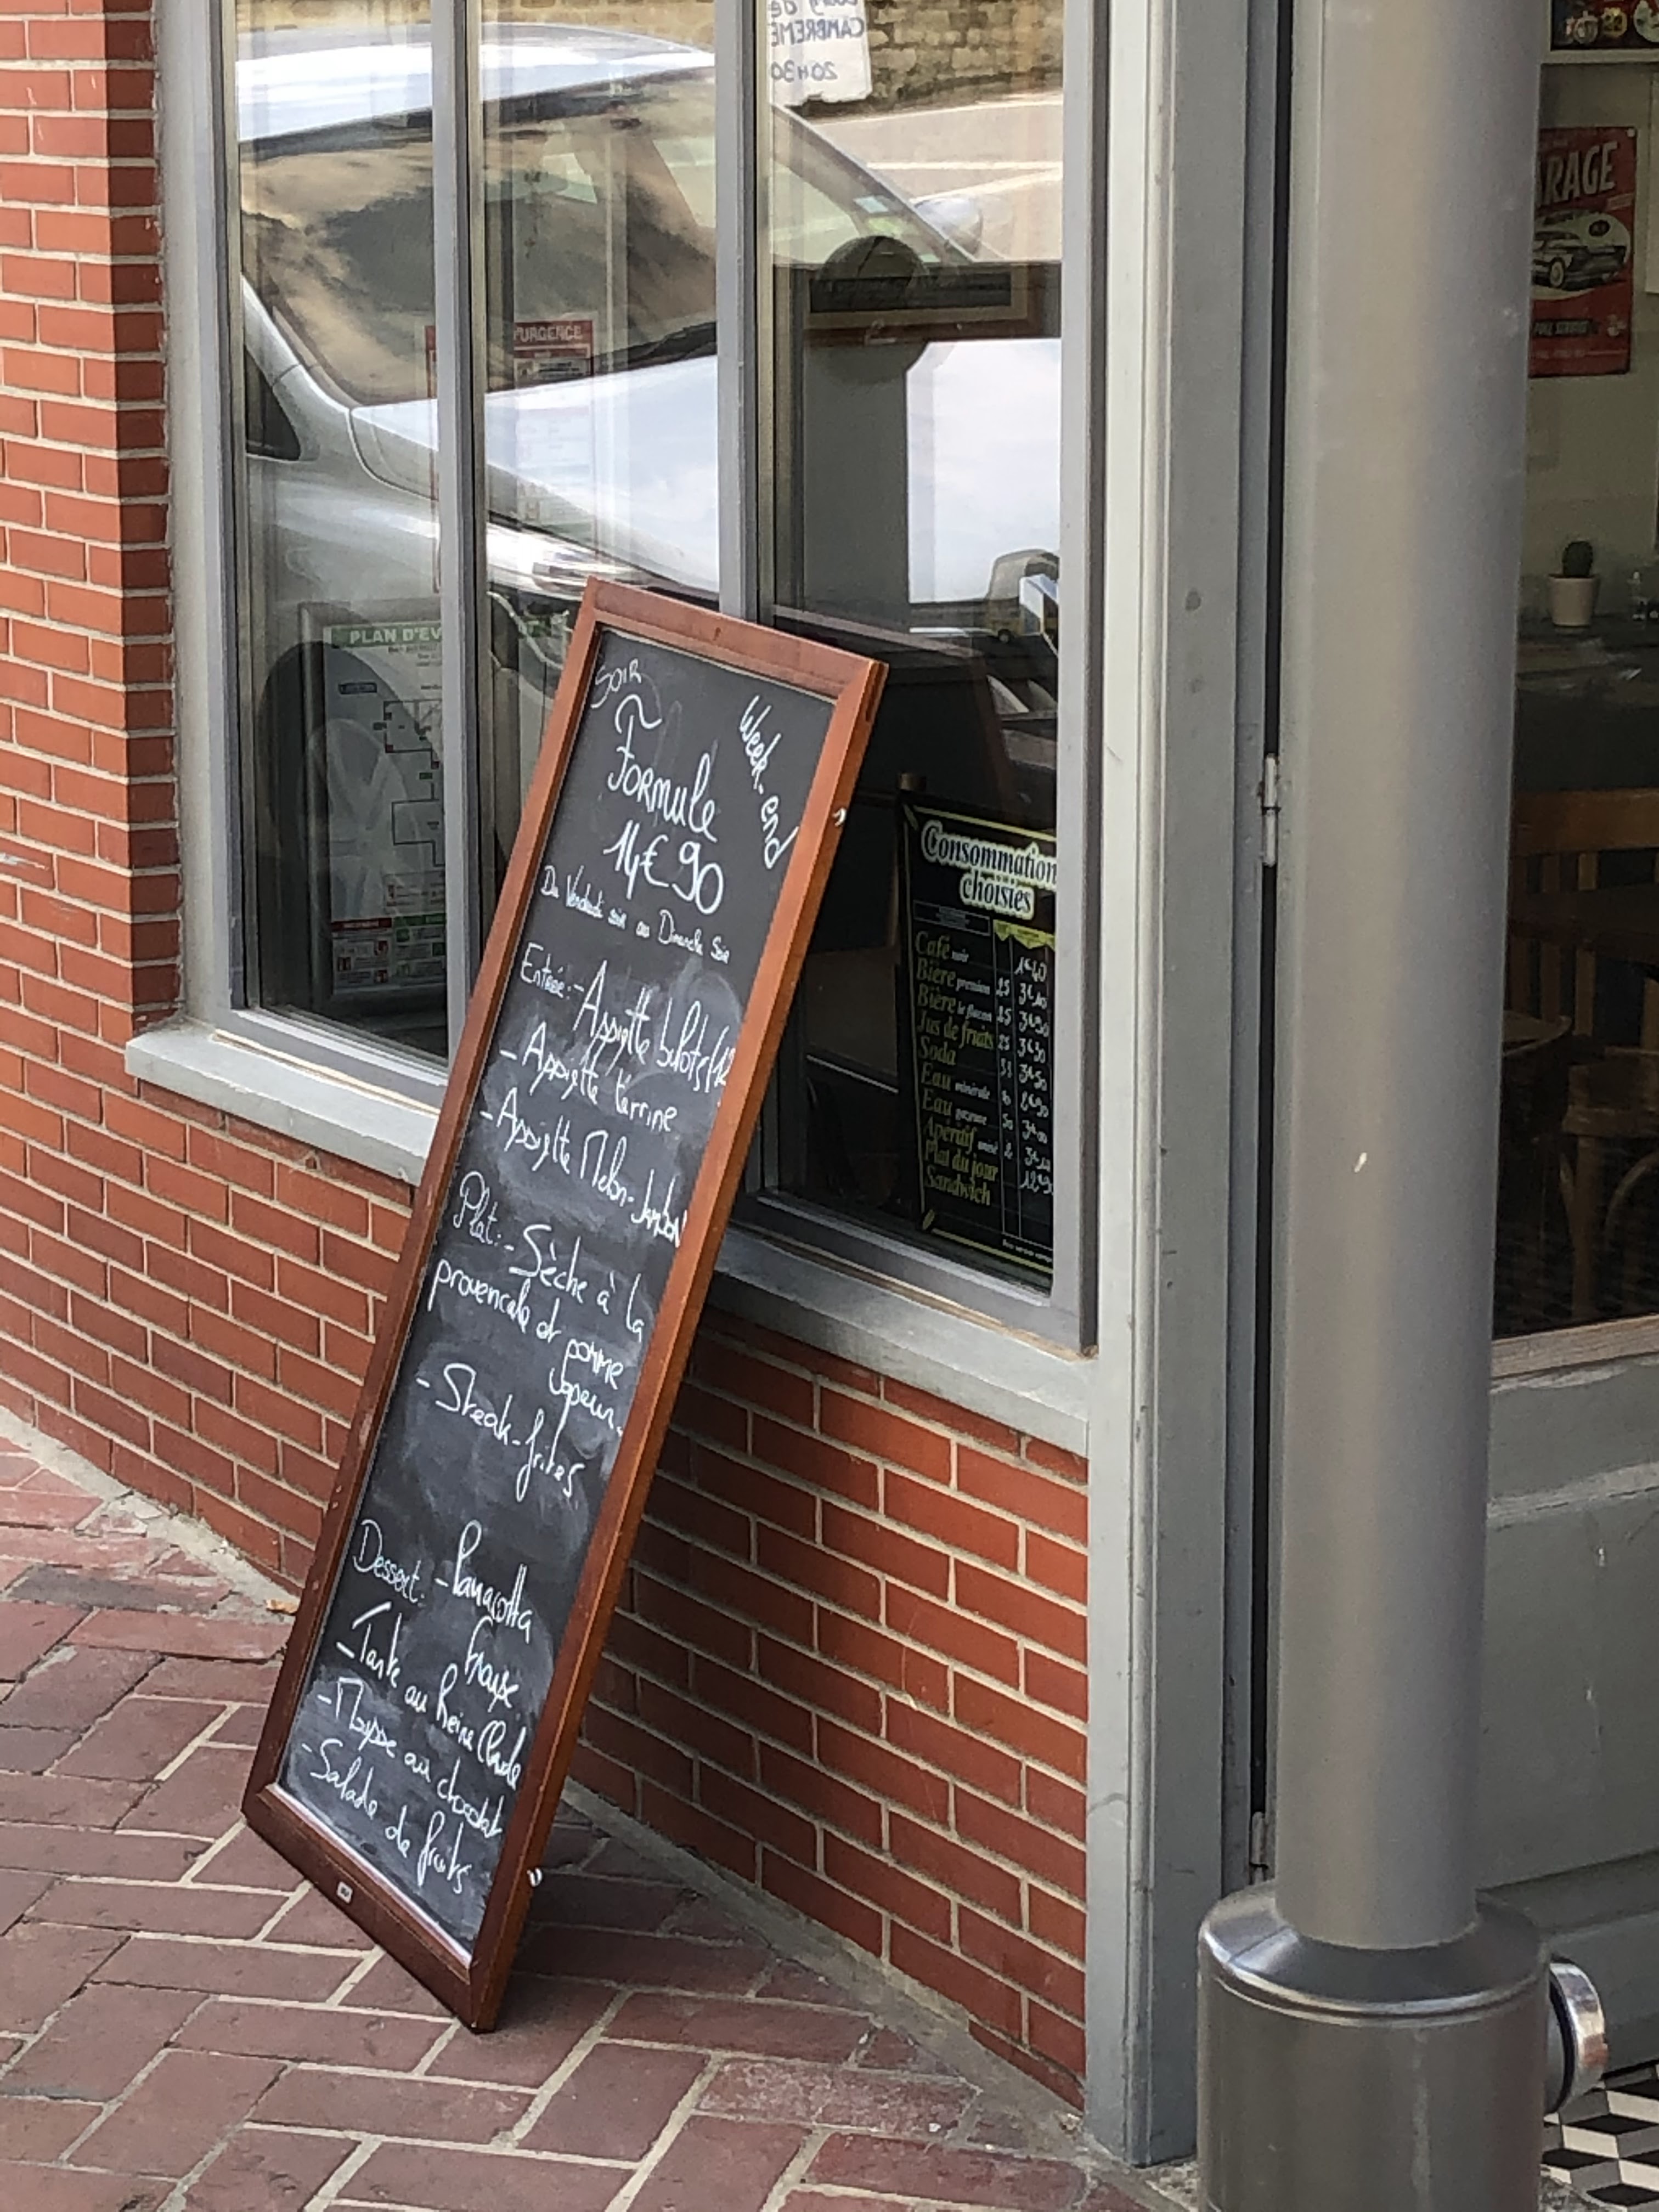 CAMBREMER
20H30
ARAGE
FULL SERVICE
URGENCE
PLAN D'EV
SOIR
Week-end
Formule
14€90
Du Vendredi soir au Dimanche soir
Entrée: - Assiette bulots (12
- Assiette terrine
- Assiette Melon-Jambon
Plat: - Sèche à la
provencale et pomme
vapeur.
- Steak-frites
Dessert: - Panacotta
fraise
- Tarte au Reine Claude
- Mousse au chocolat
- Salade
de fruits
Consommation
choisies
Café noir 1€40
Bière pression 25 3€10
Bière le flacon 25 3€90
Jus de fruits 25 3€30
Soda 33 3€50
Eau minérale
Eau gazeuse 50 3€00
Apéritif anisé 2 3€10
Plat du jour 12€9
Sandwich